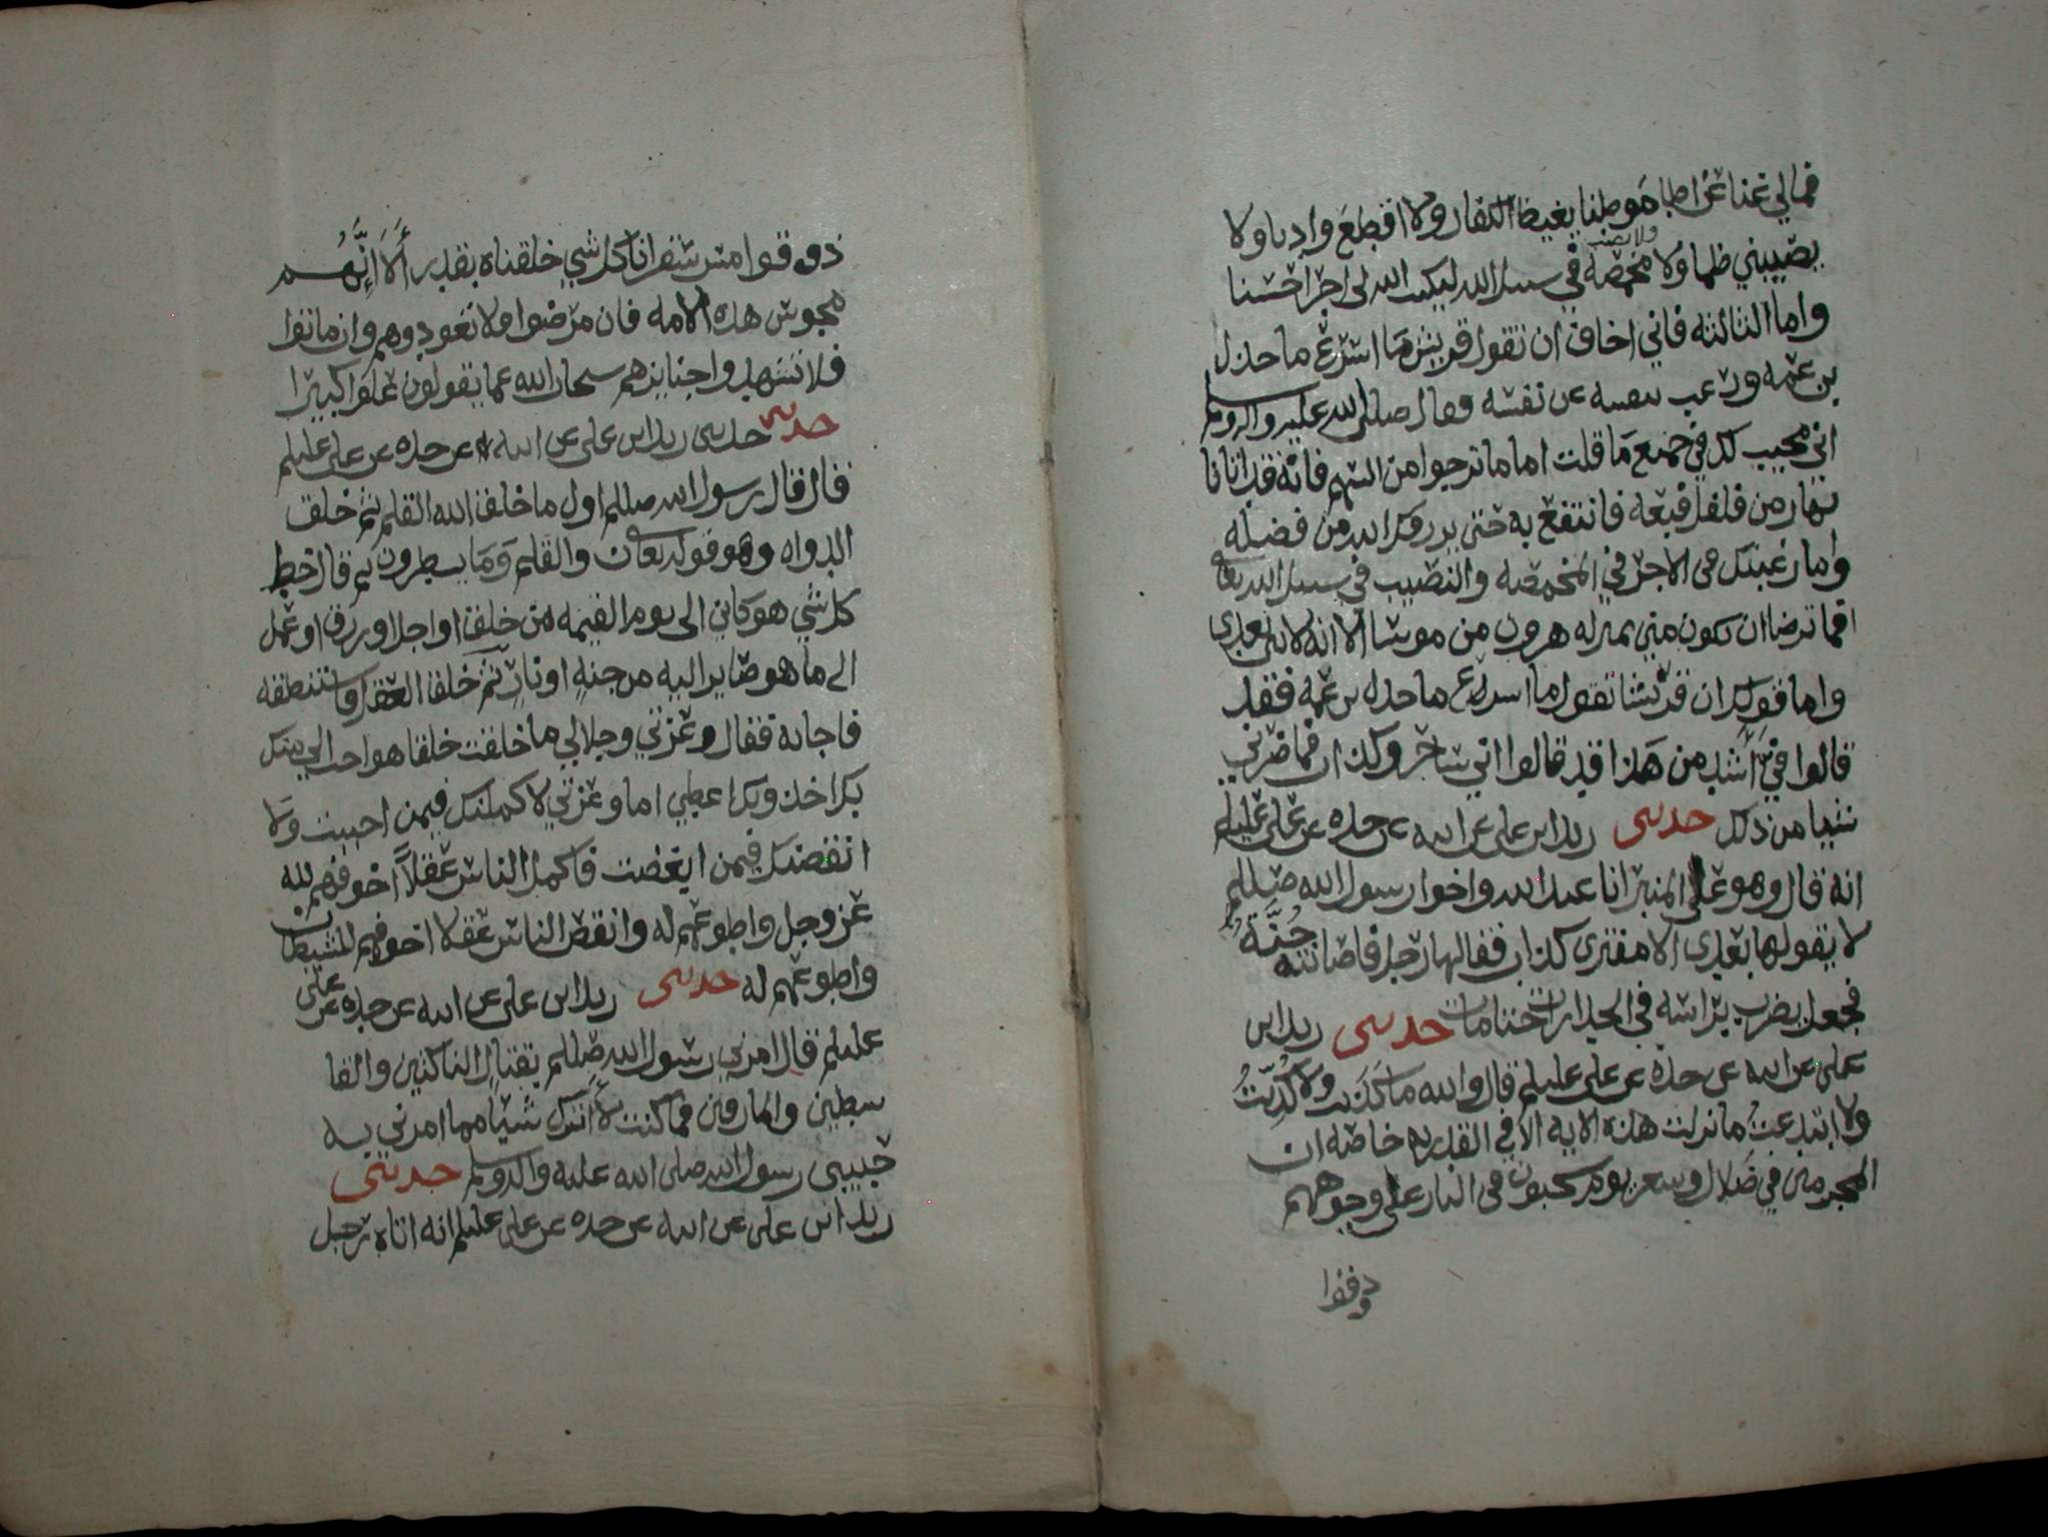 فمالي غنا عن اطا موطنا يغيظ الكفار ولا اقطع واديا ولا
يصيبني ظما ولا ولا نصب مخمصه في سبيل الله ليكتب الله لي اجرا حسنا
واما الثالثه فاني اخاف ان تقول قريش ما اسرع ما خذل
بن عمه ورغب بنفسه عن نفسه فقال صلى الله عليه واله وسلم
اني مجيب لك في جميع ما قلت اما ما ترجوا من السهم فانه قد اتانا
بهار من فلفل فبعه فانتفع به حتى يرزقك الله من فضله
واما رغبتك في الاجر في المخمصه والنصب في سبيل الله تعالى
افما ترضا ان تكون مني بمنزله هرون من موسا الا انه لا نبي بعدي
واما قولك ان قريشا تقول ما اسرع ما خذل بن عمه فقد
قالوا في اشد من هذا قد قالوا اني ساحر وكذاب فما ضرني
شيا من ذلك حدثني زيد ابن علي عن ابيه عن جده عن علي عليلم
انه قال وهو على المنبر انا عبد الله واخوا رسول الله صللم
لا يقولها بعدي الا مفتري كذاب فقالها رجل فاصابته جنة
فجعل يضرب براسه في الجدارات حتا مات حدثني زيد ابن
علي عن ابيه عن جده عن علي عليلم قال والله ما كذبت ولا كذبت
ولا ابتدعت ما نزلت هذه الايه الا في القدريه خاصه ان
المجرمين في ضلال وسعر يوم يسحبون في النار على وجوههم
ذوقوا
ذوقوا مس سقر انا كل شي خلقناه بقدر ألا إنهم
مجوس هذه الامه فان مرضوا فلا تعودوهم وان ماتوا
فلا تشهدوا جنايزهم سبحان الله عما يقولون علوا كبيرا
حدثني حدثني زيد ابن علي عن ابيه عن جده عن علي عليلم
قال قال رسول الله صللم اول ما خلق الله القلم ثم خلق
الدواه وهو قوله تعالى ن والقلم وما يسطرون ثم قال خط
كل شي هو كاين الى يوم القيمه من خلق او اجل او رزق او عمل
الى ما هو صاير اليه من جنه او نار ثم خلق العقل فاستنطقه
فاجابه فقال وعزتي وجلالي ما خلقت خلقا هو احب الي منك
بك اخذ وبك اعطي اما وعزتي لاكملنك فيمن احببت ولا
انقصنك فيمن ابغضت فاكمل الناس عقلاً اخوفهم لله
عز وجل واطوعهم له وانقص الناس عقلا اخوفهم للشيطان
واطوعهم له حدثني زيد ابن علي عن ابيه عن جده عن علي
عليلم قال امرني رسول الله صللم بقتال الناكثين والقا
سطين والمارقين فما كنت لأترك شيا مما امرني به
حبيبي رسول الله صلى الله عليه واله وسلم حدثني
زيد ابن علي عن ابيه عن جده عن علي عليلم انه اتاه رجل